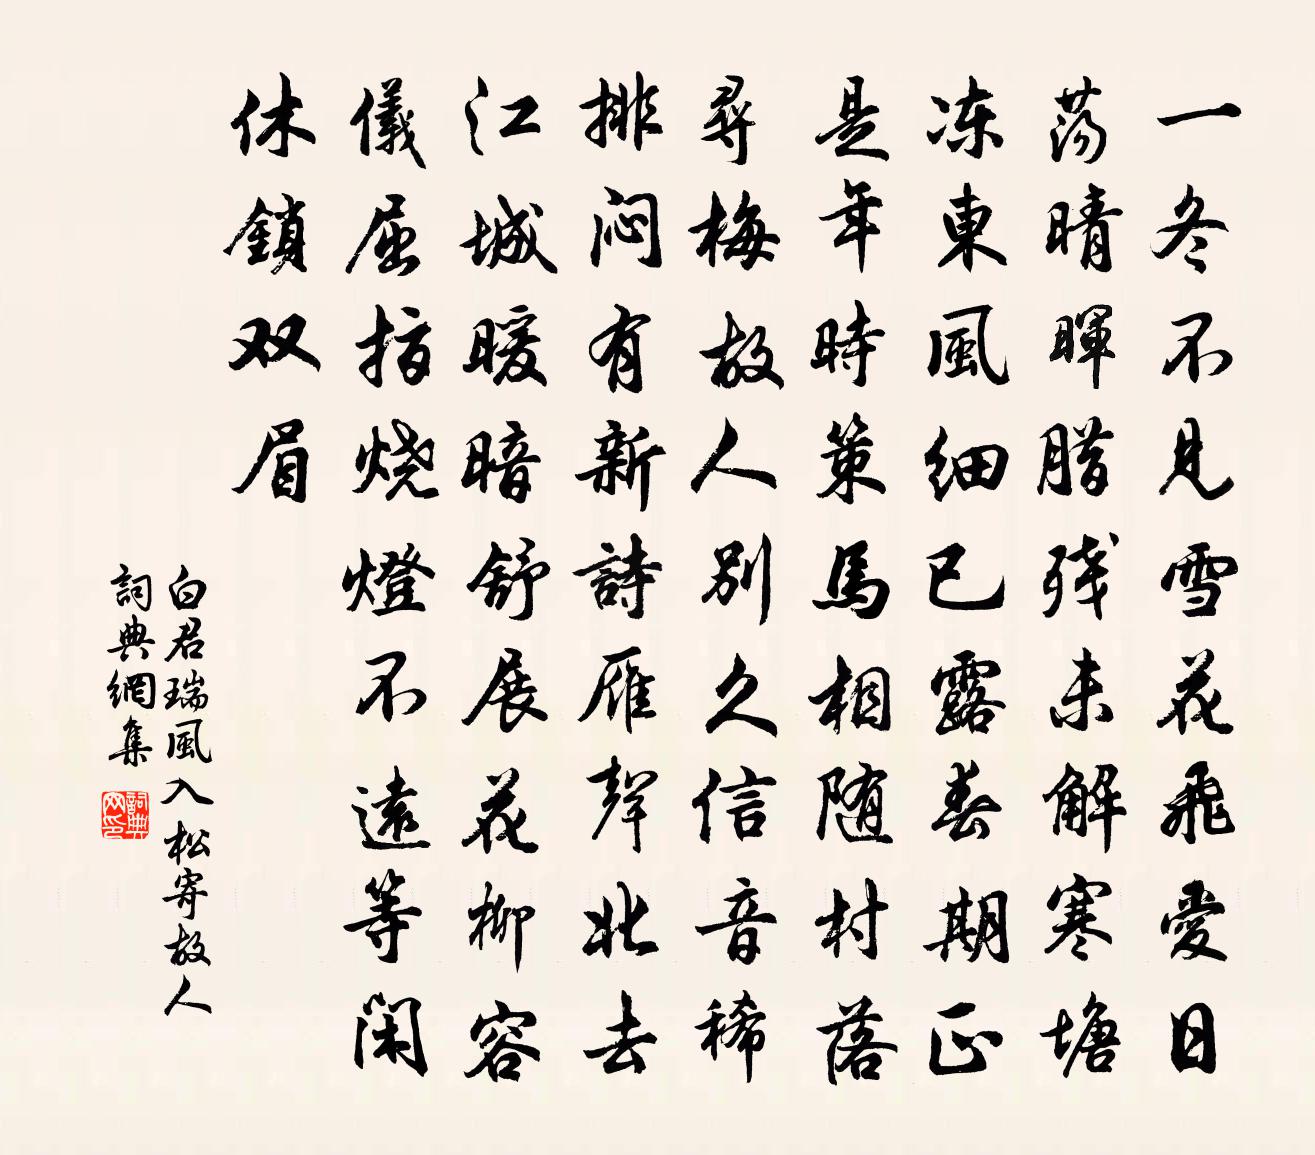 一冬不見雪花飛愛日
荡晴暉腊残未解寒塘
冻東風細已露春期正
是年時策馬相随村落
尋梅故人別久信音稀
排闷有新詩雁聲北去
江城暖暗舒展花柳容
儀屈指烧燈不遠等闲
休鎖双眉
白君瑞風入松寄故人
詞典網集
詞典网印